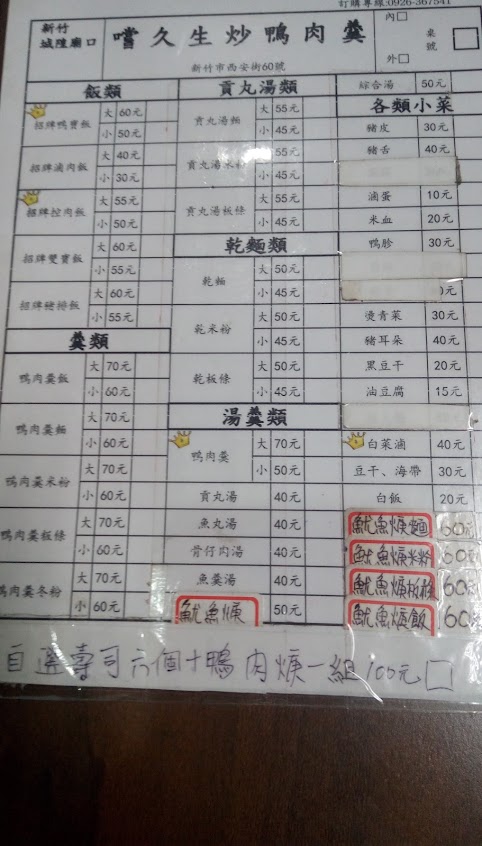 訂購專線:0926-367541
新竹
城隍廟口
嚐久生炒鴨肉羹
新竹市西安街60號
內□
外□
桌號
飯類
招牌鴨寶飯 大 60元
小 50元
招牌滷肉飯 大 40元
小 30元
招牌控肉飯 大 55元
小 50元
招牌雙寶飯 大 60元
小 55元
招牌豬排飯 大 60元
小 55元
羹類
鴨肉羹飯 大 70元
小 60元
鴨肉羹麵 大 70元
小 60元
鴨肉羹米粉 大 70元
小 60元
鴨肉羹板條 大 70元
小 60元
鴨肉羹冬粉 大 70元
小 60元
貢丸湯類
貢丸湯麵 大 55元
小 45元
貢丸湯米粉 大 55元
小 45元
貢丸湯板條 大 55元
小 45元
乾麵類
乾麵 大 50元
小 45元
乾米粉 大 50元
小 45元
乾板條 大 50元
小 45元
湯羹類
鴨肉羹 大 70元
小 50元
貢丸湯 40元
魚丸湯 40元
骨仔肉湯 40元
魚羹湯 40元
魷魚焿 50元
綜合湯 50元
各類小菜
豬皮 30元
豬舌 40元
滷蛋 10元
米血 20元
鴨胗 30元
0元
燙青菜 30元
豬耳朵 40元
黑豆干 20元
油豆腐 15元
白菜滷 40元
豆干、海帶 30元
白飯 20元
魷魚焿麵 60元
魷魚焿米粉 60元
魷魚焿板條 60元
魷魚焿飯 60
自選壽司六個十鴨肉焿一組100元□